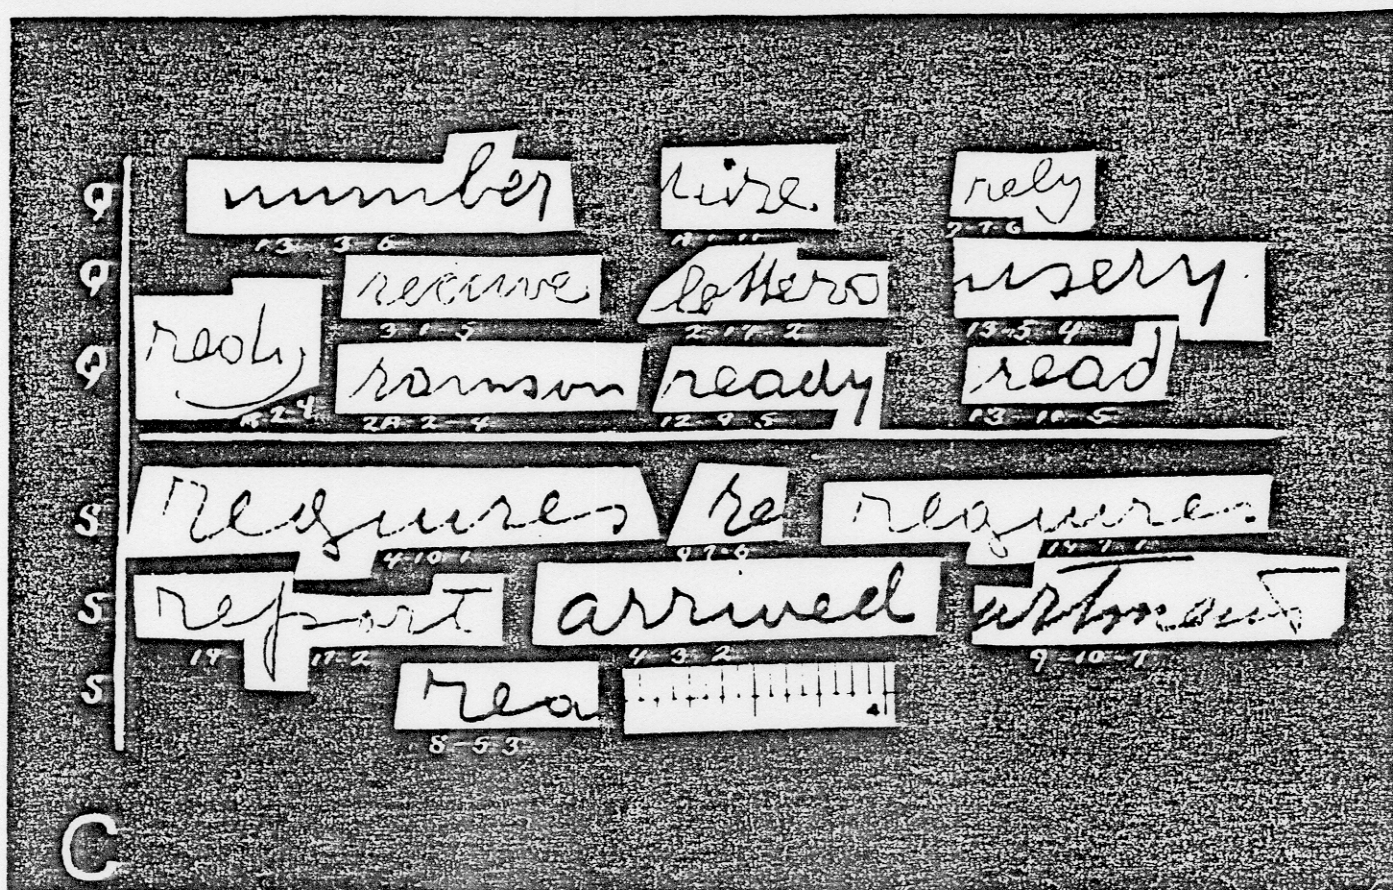 Q number rely
13-3-6 2-7-6
Q receive letters nsery
3-1-5 2-17-2 13-5-4
Q ready ransom ready read
2A-2-4 12-9-5
S requires re requires
4-10-1
S report arrived
17-2 4-3-2 9-10-7
S rea 4
8-5-3
C